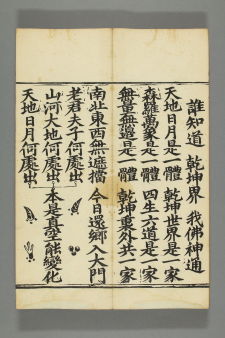 誰知道 乾坤界 我佛神通
天地日月是一體 乾坤世界是一家
森羅萬象是一體 四生六道是一家
無量無邊是一體 乾坤裏外共一家
南北東西無遮擋 今日還鄉入大門
老君夫子何處出
山河大地何處出 本是真空能變化
天地日月何處出